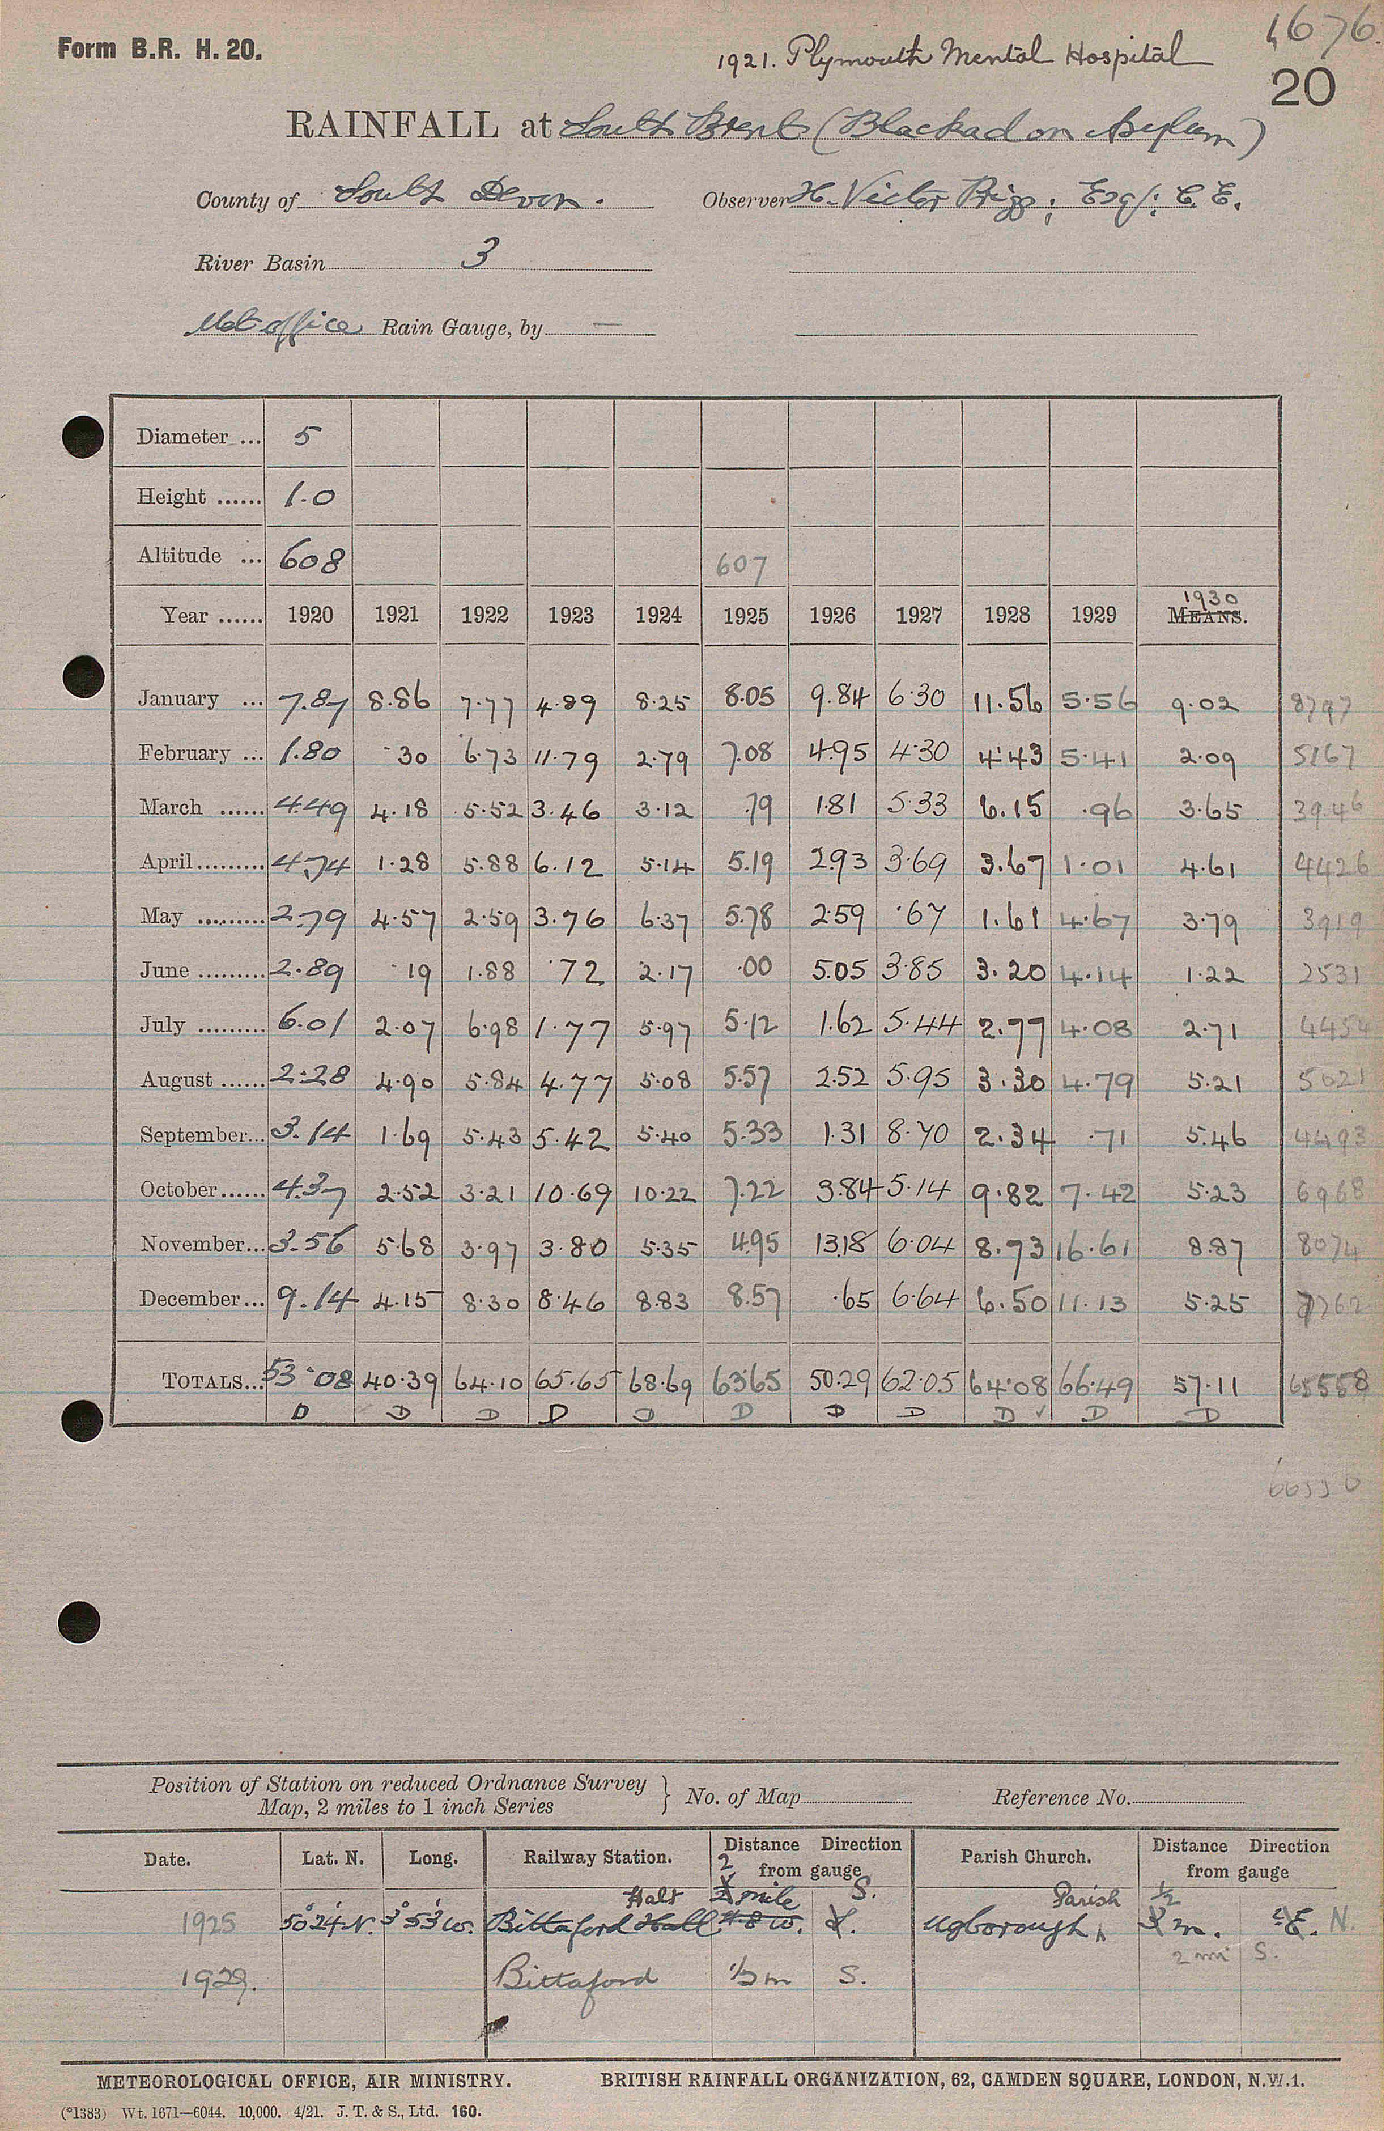 Form B.R. H. 20.
1921. Plymouth Mental Hospital
20
RAINFALL at South Brent (Blackadon Asylum)
County of South Devon. Observer H. Victor Prigg, Esq., C.E.
River Basin 3
Met office Rain Gauge, by —
Diameter ... 5
Height ...... 1.0
Altitude ... 608 607
Year ...... 1920 1921 1922 1923 1924 1925 1926 1927 1928 1929 1930 MEANS.
January ... 7.87 8.86 7.77 4.89 8.25 8.05 9.84 6.30 11.56 5.56 9.02 8797
February ... 1.80 .30 6.73 11.79 2.79 7.08 4.95 4.30 4.43 5.41 2.09 5167
March ...... 4.49 4.18 5.52 3.46 3.12 .79 1.81 5.33 6.15 .96 3.65 3946
April ......... 4.74 1.28 5.88 6.12 5.14 5.19 2.93 3.69 3.67 1.01 4.61 4426
May ......... 2.79 4.57 2.59 3.76 6.37 5.78 2.59 .67 1.61 4.67 3.79 3919
June ......... 2.89 .19 1.88 .72 2.17 .00 5.05 3.85 3.20 4.14 1.22 2531
July ......... 6.01 2.07 6.98 1.77 5.97 5.12 1.62 5.44 2.77 4.08 2.71 4454
August ...... 2.28 4.90 5.84 4.77 5.08 5.57 2.52 5.95 3.30 4.79 5.21 5021
September... 3.14 1.69 5.43 5.42 5.40 5.33 1.31 8.70 2.34 .71 5.46 4493
October ...... 4.37 2.52 3.21 10.69 10.22 7.22 3.84 5.14 9.82 7.42 5.23 6968
November... 3.56 5.68 3.97 3.80 5.35 4.95 13.18 6.04 8.73 16.61 8.87 8074
December... 9.14 4.15 8.30 8.46 8.83 8.57 .65 6.64 6.50 11.13 5.25 7762
TOTALS... 53.08 40.39 64.10 65.65 68.69 63.65 50.29 62.05 64.08 66.49 57.11 65558
D D D D D D D D D ✓ D D
Position of Station on reduced Ordnance Survey
Map, 2 miles to 1 inch Series } No. of Map Reference No.
Date. Lat. N. Long. Railway Station. Distance Direction from gauge Parish Church. Distance Direction from gauge
Halt mile S. Parish ½
1925 50°24'N. 3°53'W. Bittaford Ugborough m. E. N.
2 mi S.
1929. Bittaford 1/3 m S.
METEOROLOGICAL OFFICE, AIR MINISTRY. BRITISH RAINFALL ORGANIZATION, 62, CAMDEN SQUARE, LONDON, N.W.1.
(*1383) Wt. 1671—6044. 10,000. 4/21. J. T. & S., Ltd. 160.